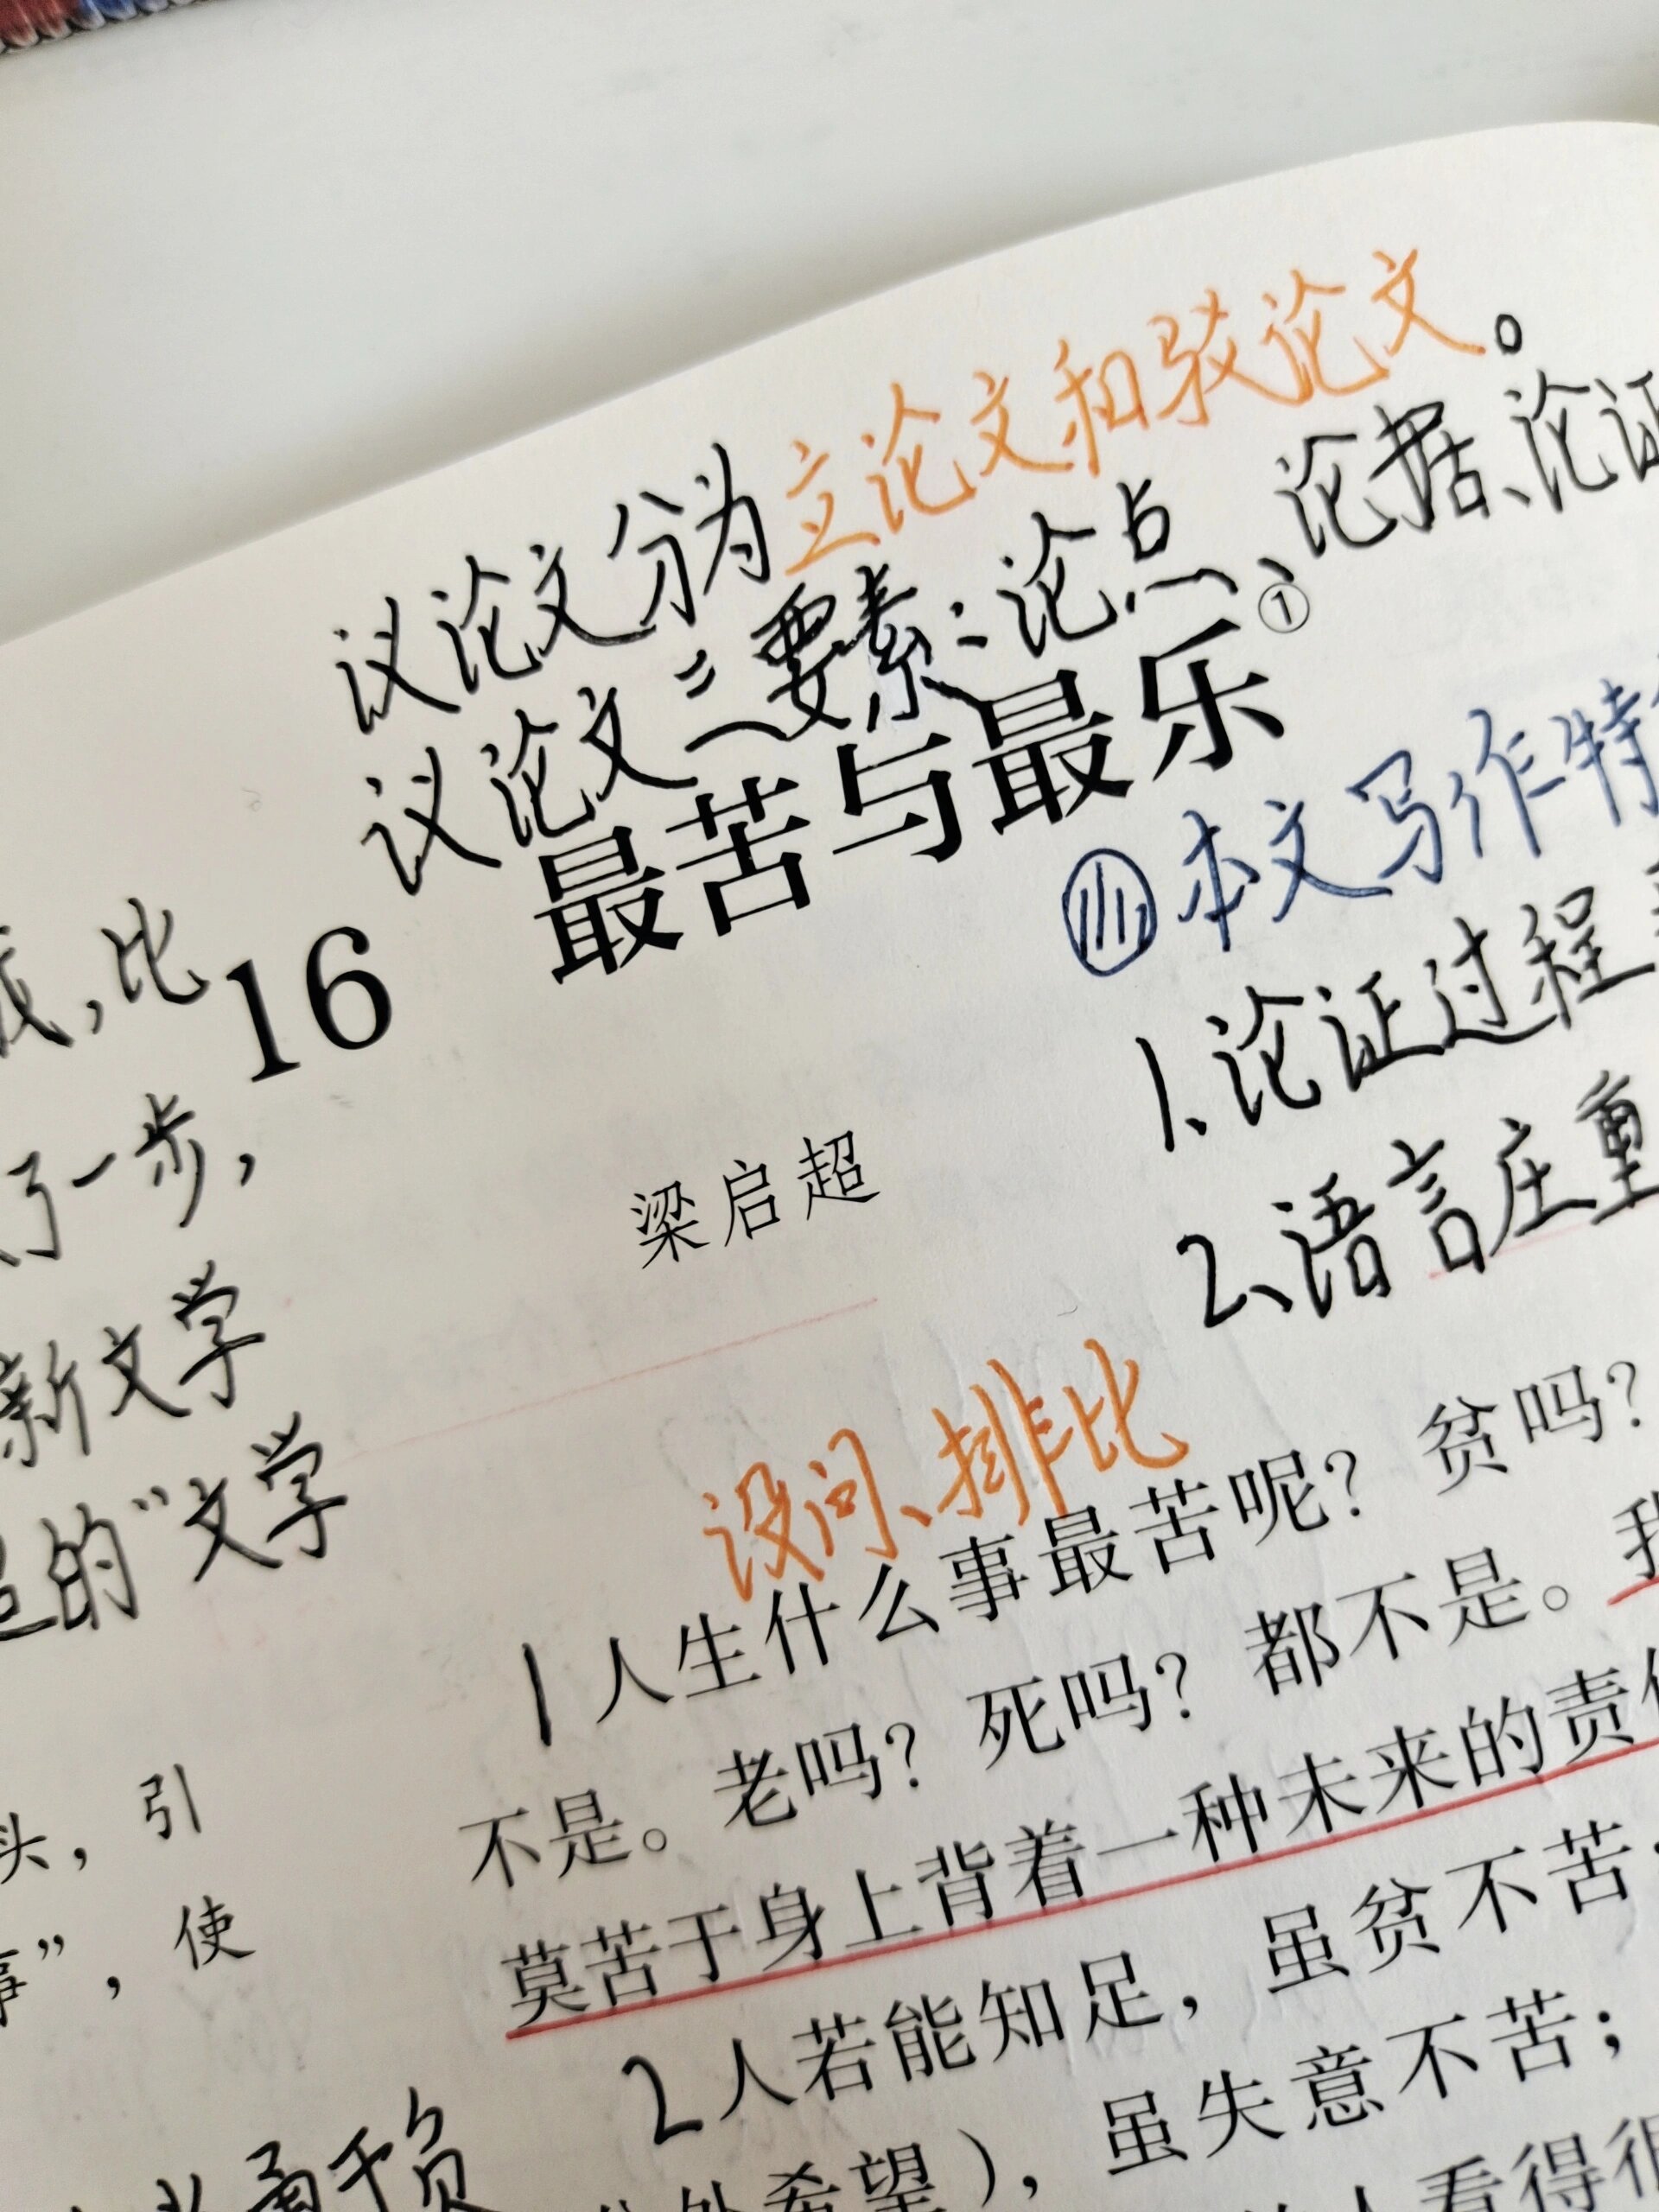 议论文分为立论文和驳论文。
议论文三要素：论点、论据、论证
16 最苦与最乐①
本文写作特
1、论证过程
2、语言庄重
梁启超
设问、排比
1人生什么事最苦呢？贫吗？
不是。老吗？死吗？都不是。我
莫苦于身上背着一种未来的责
2人若能知足，虽贫不苦
希望），虽失意不苦；
人看得很
，比
了一步，
新文学
的“文学
头，引
”，使